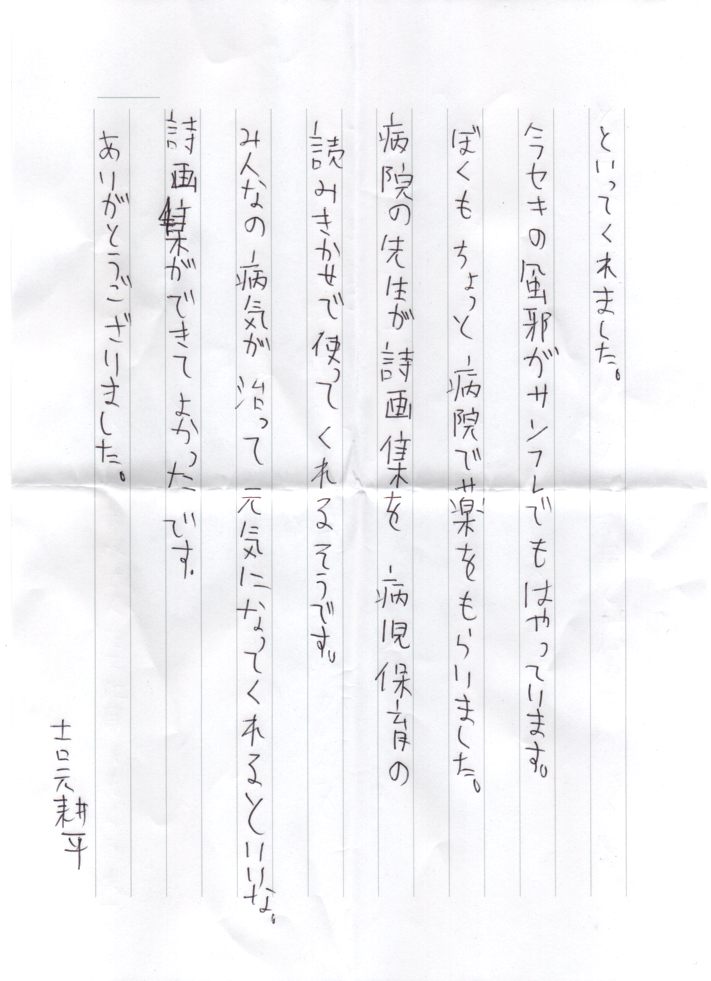 といってくれました。
今セキの風邪がサンフレでもはやっています。
ぼくもちょっと病院で薬をもらいました。
病院の先生が詩画集を病児保育の
読みきかせで使ってくれるそうです。
みんなの病気が治って元気になってくれるといいな。
詩画集ができてよかったです。
ありがとうございました。
吉元耕平